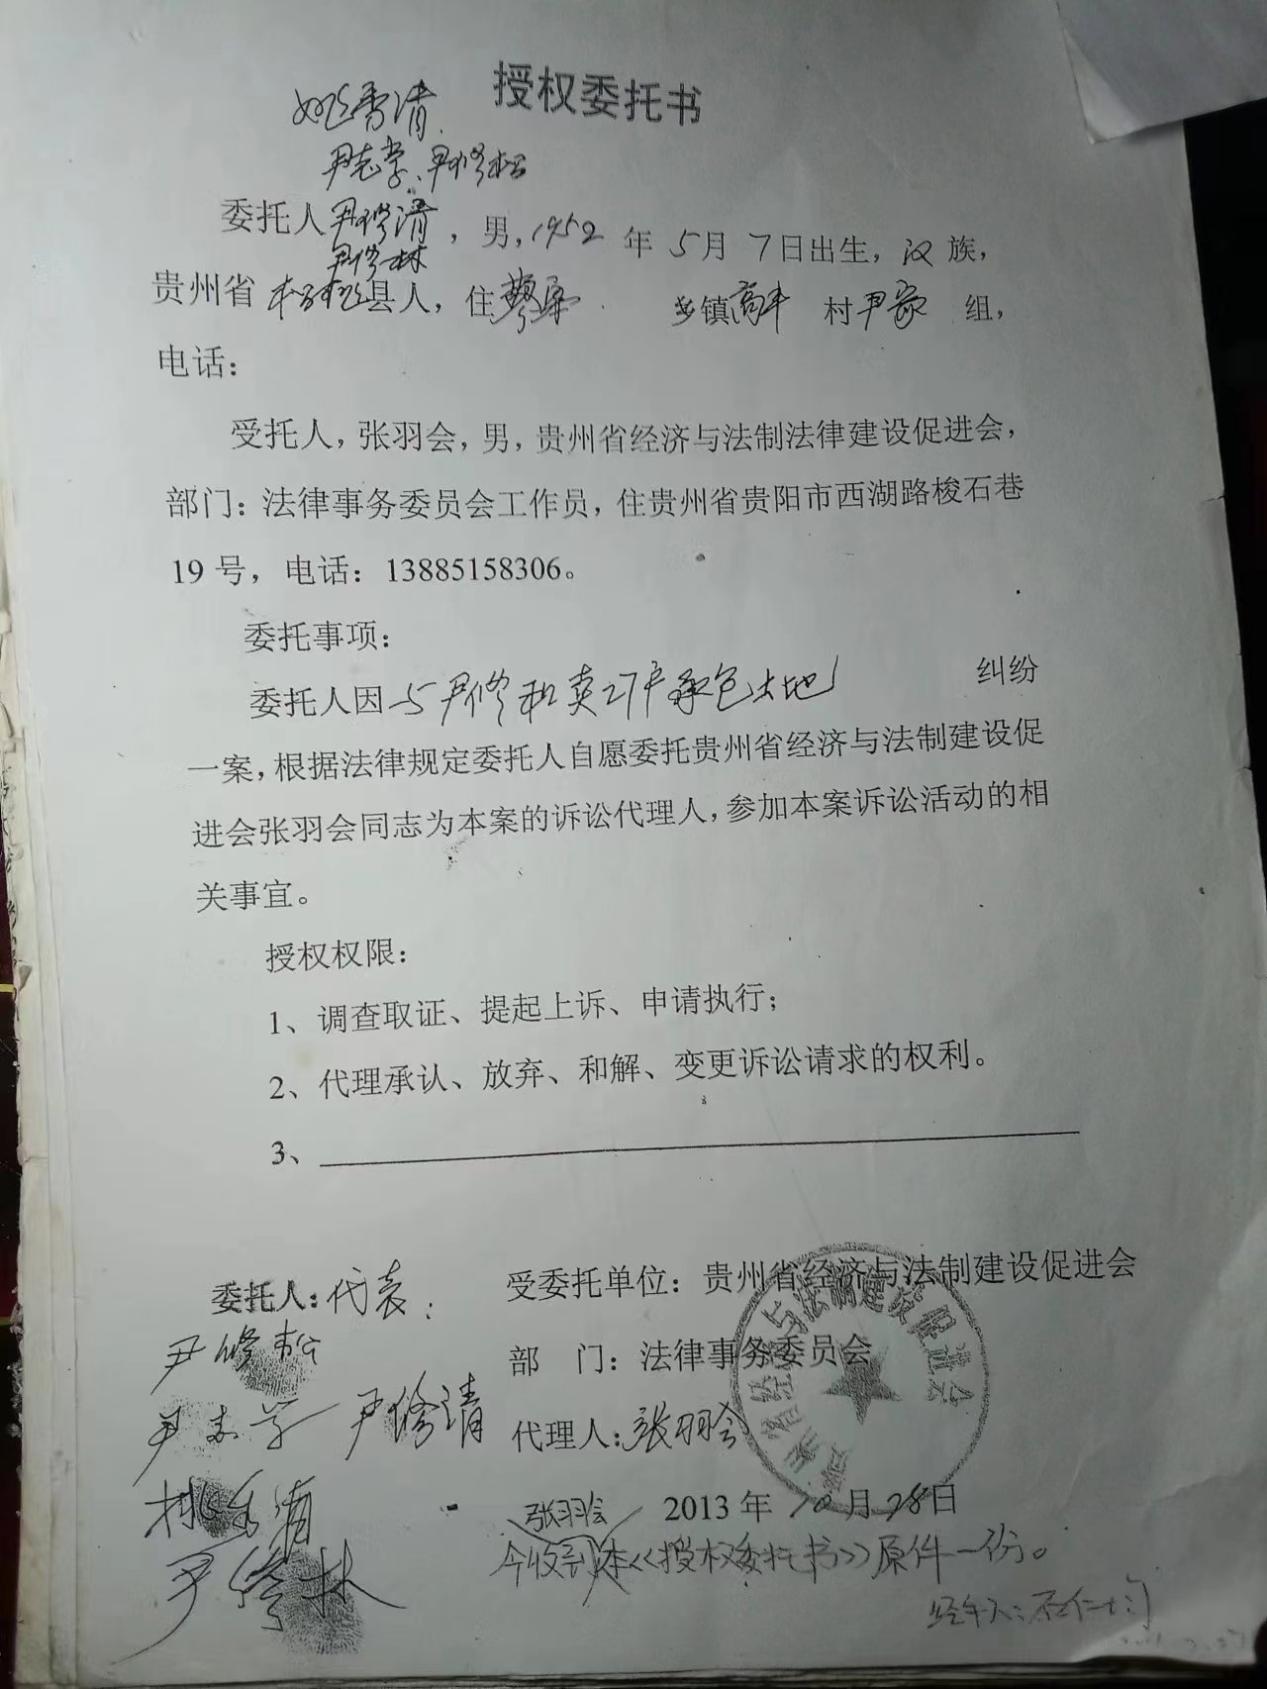 授权委托书
姚秀清
尹志学、尹修松
委托人尹修清，男，1952年5月7日出生，汉族，
尹修林
贵州省松桃县人，住蓼皋 乡镇高丰 村尹家 组，
电话：
受托人，张羽会，男，贵州省经济与法制法律建设促进会，
部门：法律事务委员会工作员，住贵州省贵阳市西湖路梭石巷
19号，电话：13885158306。
委托事项：
委托人因与尹修和卖27户承包土地 纠纷
一案，根据法律规定委托人自愿委托贵州省经济与法制建设促
进会张羽会同志为本案的诉讼代理人，参加本案诉讼活动的相
关事宜。
授权权限：
1、调查取证、提起上诉、申请执行；
2、代理承认、放弃、和解、变更诉讼请求的权利。
3、
委托人：代表： 受委托单位：贵州省经济与法制建设促进会
尹修松 部 门：法律事务委员会
尹志学 尹修清 代理人：张羽会
姚秀清 张羽会 2013年10月28日
尹修林 今收到本《授权委托书》原件一份。
经手人：石仁
贵州省经济与法制建设促进会